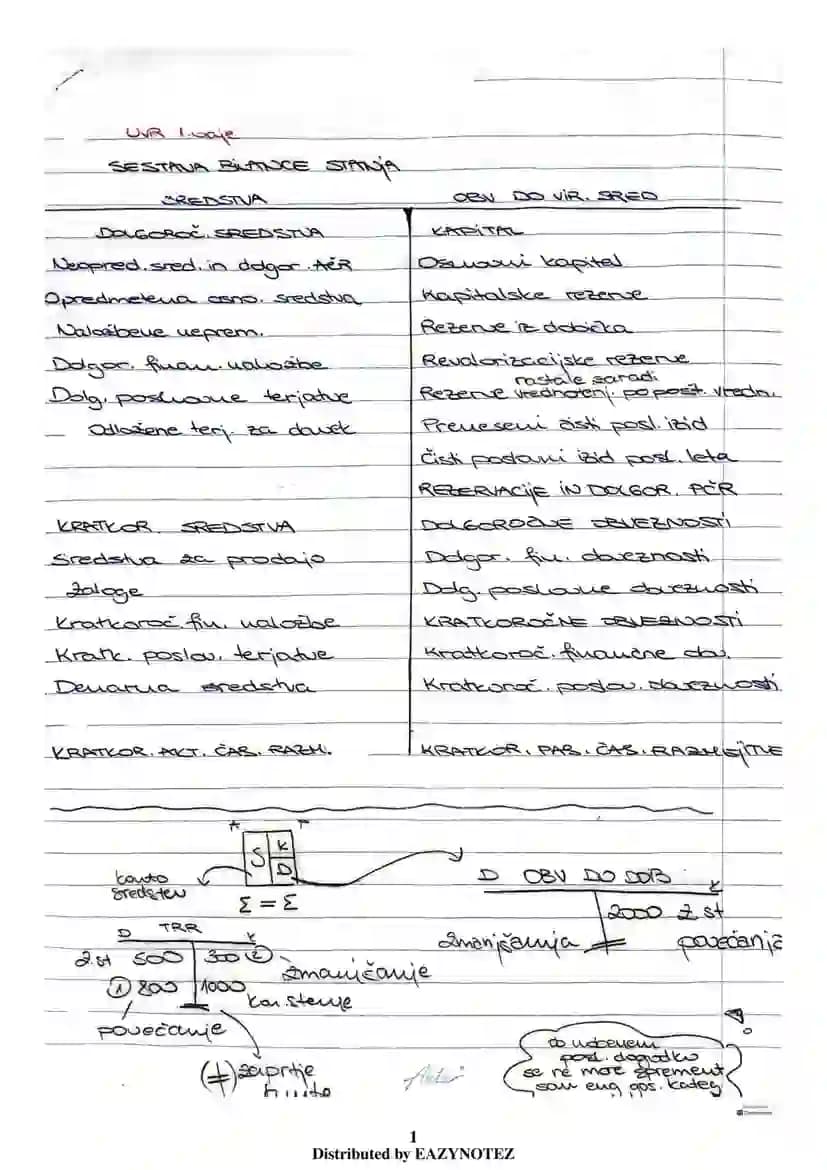 UVR 1. vaje
SESTAVA BILANCE STANJA
SREDSTVA
OBV DO VIR. SRED
DOLGOROČ. SREDSTVA
KAPITAL
Neopred. sred. in dolgor. AČR
Osnovni kapital
Opredmetena osno. sredstva
Kapitalske rezerve
Naložbene neprem.
Rezerve iz dobička
Dolgor. finan. naložbe
Revalorizacijske rezerve
nastale zaradi
Dolg. poslovne terjatve
Rezerve vrednotenj. po pošt. vredn.
Odložene terj. za davek
Preneseni čisti posl. izid
Čisti poslovni izid posl. leta
REZERVACIJE IN DOLGOR. PČR
KRATKOR. SREDSTVA
DOLGOROČNE OBVEZNOSTI
Sredstva za prodajo
Dolgor. fin. obveznosti
Zaloge
Dolg. poslovne obveznosti
Kratkoroč. fin. naložbe
KRATKOROČNE OBVEZNOSTI
Kratk. poslov. terjatve
Kratkoroč. finančne obv.
Denarna sredstva
Kratkoroč. poslov. obveznosti
KRATKOR. AKT. ČAS. RAZM.
KRATKOR. PAS. ČAS. RAZMEJITVE
+ -
S K
D
konto
sredstev
Σ = Σ
D OBV DO DOB. K
2000 Z. st
zmanjšanja povečanja
D TRR K
Z. st 500 300 ②
zmanjšanje
① 800 1000
kon. stanje
povečanje
(≠) zaprtje
konta
ob nobenem
posl. dogodku
se ne more spremeniti
samo ena gos. kateg
1
Distributed by EAZYNOTEZ